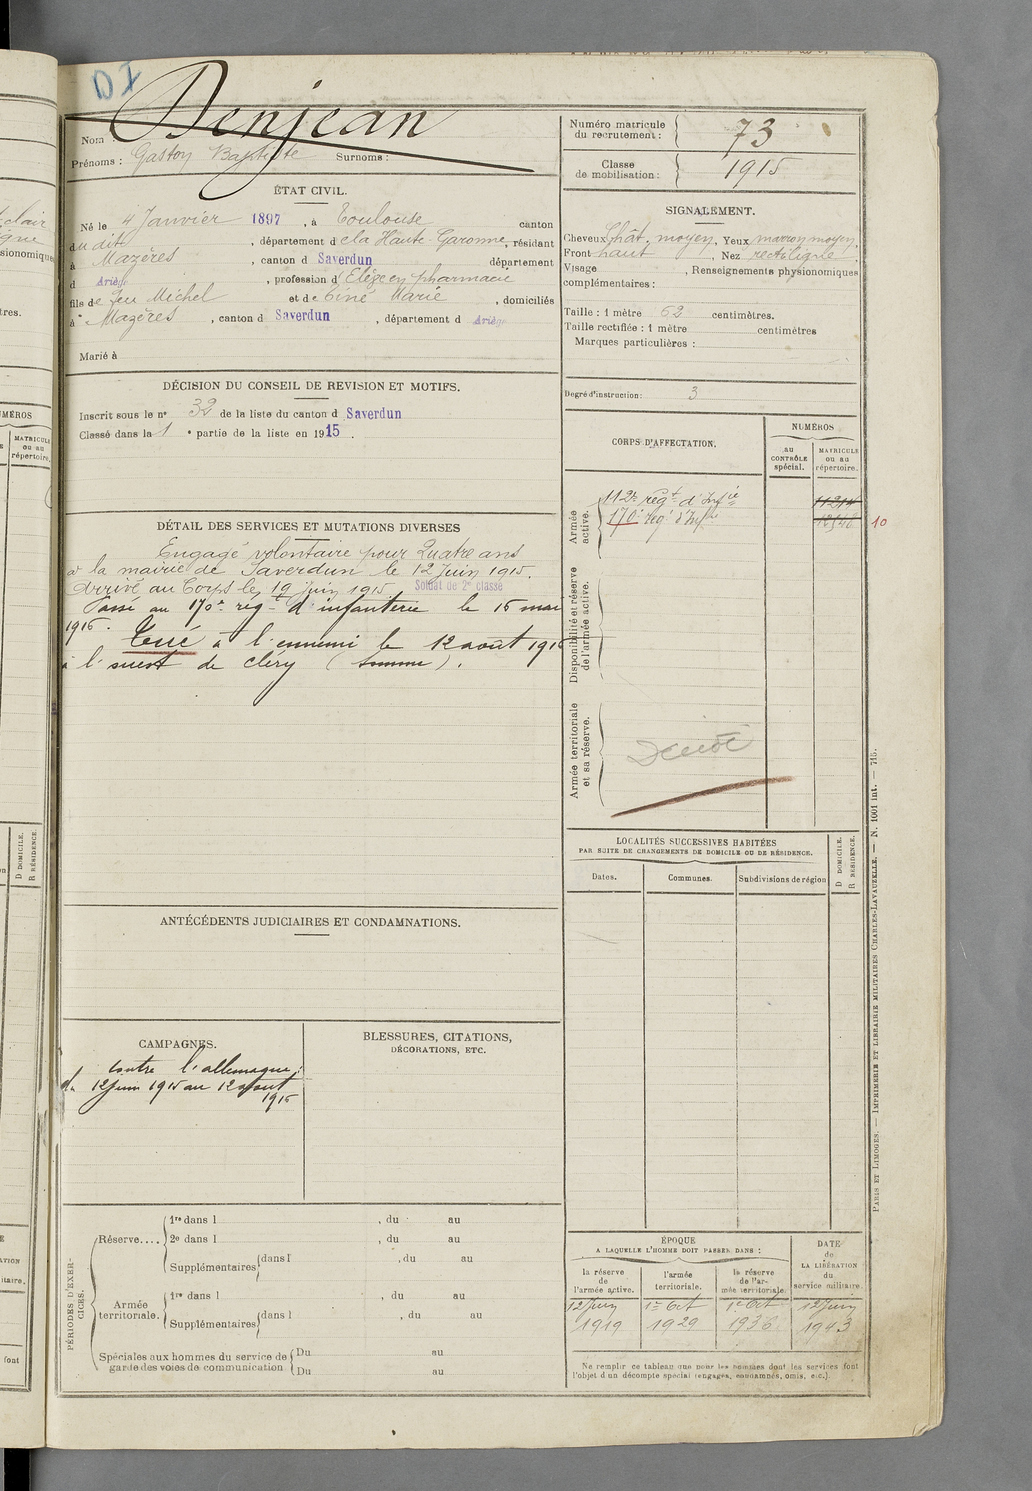 DI
Denjean
Nom :
Prénoms : Gaston Baptiste Surnoms :
Numéro matricule du recrutement : 73
Classe de mobilisation : 1915
ÉTAT CIVIL.
Né le 4 Janvier 1897, à Toulouse canton
du dit, département de la Haute-Garonne, résidant
à Mazères, canton d Saverdun département
d Ariège, profession d'Elève en pharmacie
fils de feu Michel et de Marie, domiciliés
à Mazères, canton d Saverdun, département d Ariège
Marié à
SIGNALEMENT.
Cheveux chât. moyen, Yeux marron moyen,
Front haut, Nez rectiligne,
Visage , Renseignements physionomiques
complémentaires :
Taille : 1 mètre 62 centimètres.
Taille rectifiée : 1 mètre centimètres
Marques particulières :
Degré d'instruction : 3
DÉCISION DU CONSEIL DE REVISION ET MOTIFS.
Inscrit sous le n° 32 de la liste du canton d Saverdun
Classé dans la 1 e partie de la liste en 1915.
CORPS D'AFFECTATION.
NUMÉROS
au CONTRÔLE spécial.
MATRICULE ou au répertoire.
Armée active.
112e régt d'Infie 11214
170e régt d'Infie 10
Disponibilité et réserve de l'armée active.
Armée territoriale et sa réserve.
DÉTAIL DES SERVICES ET MUTATIONS DIVERSES
Engagé volontaire pour Quatre ans
à la mairie de Saverdun le 12 Juin 1915.
Arrivé au Corps le 19 Juin 1915. Soldat de 2e classe
Passé au 170e régt d'infanterie le 16 mai
1916. Tué à l'ennemi le 12 août 1916
à l'ouest de cléry (somme).
LOCALITÉS SUCCESSIVES HABITÉES
PAR SUITE DE CHANGEMENTS DE DOMICILE OU DE RÉSIDENCE.
Dates. Communes. Subdivisions de région
D DOMICILE.
R RÉSIDENCE.
ANTÉCÉDENTS JUDICIAIRES ET CONDAMNATIONS.
CAMPAGNES.
contre l'allemagne :
du 12 juin 1915 au 12 août
1916
BLESSURES, CITATIONS,
DÉCORATIONS, ETC.
PÉRIODES D'EXERCICES.
Réserve....
1re dans l , du au
2e dans l , du au
Supplémentaires dans l' , du au
Armée territoriale.
1re dans l , du au
Supplémentaires dans l , du au
Spéciales aux hommes du service de garde des voies de communication
Du au
Du au
ÉPOQUE
A LAQUELLE L'HOMME DOIT PASSER DANS :
la réserve de l'armée active.
l'armée territoriale.
la réserve de l'armée territoriale.
DATE de LA LIBÉRATION du service militaire.
12 Juin 1er Oct 1er Oct 12 Juin
1919 1929 1936 1943
Ne remplir ce tableau que pour les hommes dont les services font
l'objet d'un décompte spécial (engagés, condamnés, omis, etc.).
PARIS ET LIMOGES. — IMPRIMERIE ET LIBRAIRIE MILITAIRES CHARLES-LAVAUZELLE. — N. 1001 int. — 715.